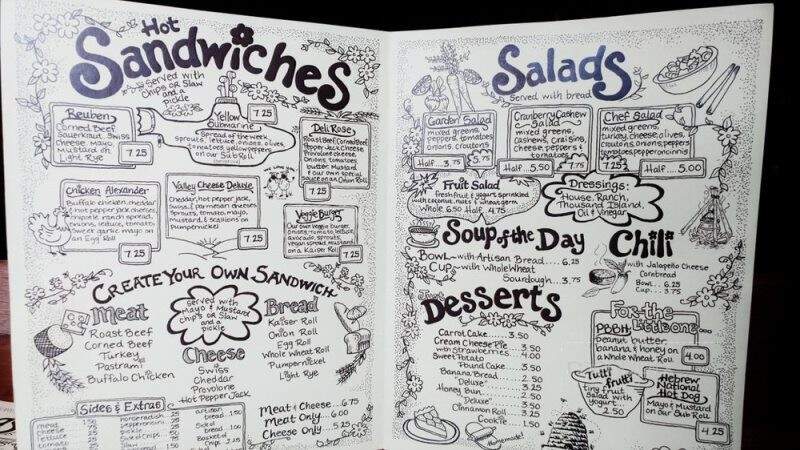 Hot
Sandwiches
Served with
Chips or Slaw
and a
pickle
Reuben
Corned Beef
Sauerkraut, Swiss
Cheese, Mayo
Mustard on
Light Rye
7.25
Yellow
Submarine
7.25
Spread of the week,
sprouts, lettuce, onions, olives,
tomatoes, yellow peppers
on our Sub Roll
Deli Rose
Roast Beef, Corned Beef
Pepper Jack Cheese
Provolone cheese
Onions, tomatoes
butter, Mustard
& our own special
sauce on an Onion Roll
7.25
Chicken Alexander
Buffalo chicken, cheddar
& hot pepper jack cheeses
chipotle ranch spread,
onions, lettuce, tomato
sweet garlic mayo on
an Egg Roll
7.25
Valley Cheese Deluxe
Cheddar, hot pepper jack,
Swiss, & parmesan cheeses
Sprouts, tomato, mayo,
mustard, & scallions on
Pumpernickel
7.25
Our own Veggie burger
onions, tomato, lettuce,
avocado, sprouts,
vegan spread, mustard
on a Kaiser Roll
7.25
Create Your Own Sandwich
Meat
Roast Beef
Corned Beef
Turkey
Pastrami
Buffalo Chicken
Served with
Mayo & Mustard
chips or Slaw
and a
pickle
Cheese
Swiss
Cheddar
Provolone
Hot Pepper Jack
Bread
Kaiser Roll
Onion Roll
Egg Roll
Whole Wheat Roll
Pumpernickel
Light Rye
Sides & Extras
meat
cheese
lettuce
tomato
horseradish
pepperoncini
pickle
artisan
bread
side of
bread
Basket of
Chips
Meat & Cheese...6.75
Meat Only...6.00
Cheese Only...5.25
Salads
Served with bread
Garden Salad
mixed greens,
peppers, tomatoes
onions, croutons
Half...3.75
5.75
Cranberry Cashew
Salad
mixed greens,
Cashews, Craisins,
Cheese, peppers &
tomatoes
Half...5.50
7.75
Chef Salad
mixed greens,
turkey, cheese, olives,
croutons, onions, peppers
tomatoes, pepperoncinis
7.25
Half...5.00
Fruit Salad
fresh fruit & yogurt sprinkled
with coconut, nuts & wheat germ
Whole 6.50 Half 4.75
Dressings:
House, Ranch,
Thousand Island,
Oil & Vinegar
Soup of the Day
Bowl - with Artisan Bread...6.25
Cup - with Whole Wheat
Sourdough...3.75
Chili
with Jalapeño Cheese
Cornbread
Bowl...6.25
Cup...3.75
Desserts
Carrot Cake...3.50
Cream Cheese Pie...3.50
with Strawberries...4.00
Sweet Potato
Pound Cake...3.50
Banana Bread...2.50
"Deluxe"...3.25
Honey Bun...2.50
"Deluxe"...3.50
Cinnamon Roll...3.25
Cookie...1.50
Homemade!
For the
Little one...
PBBH
peanut butter
banana & honey on
a Whole Wheat Roll
4.00
Tutti
frutti
tiny fruit
salad with
yogurt
2.50
Hebrew
National
Hot Dog
Mayo & Mustard
on our Sub Roll
4.25